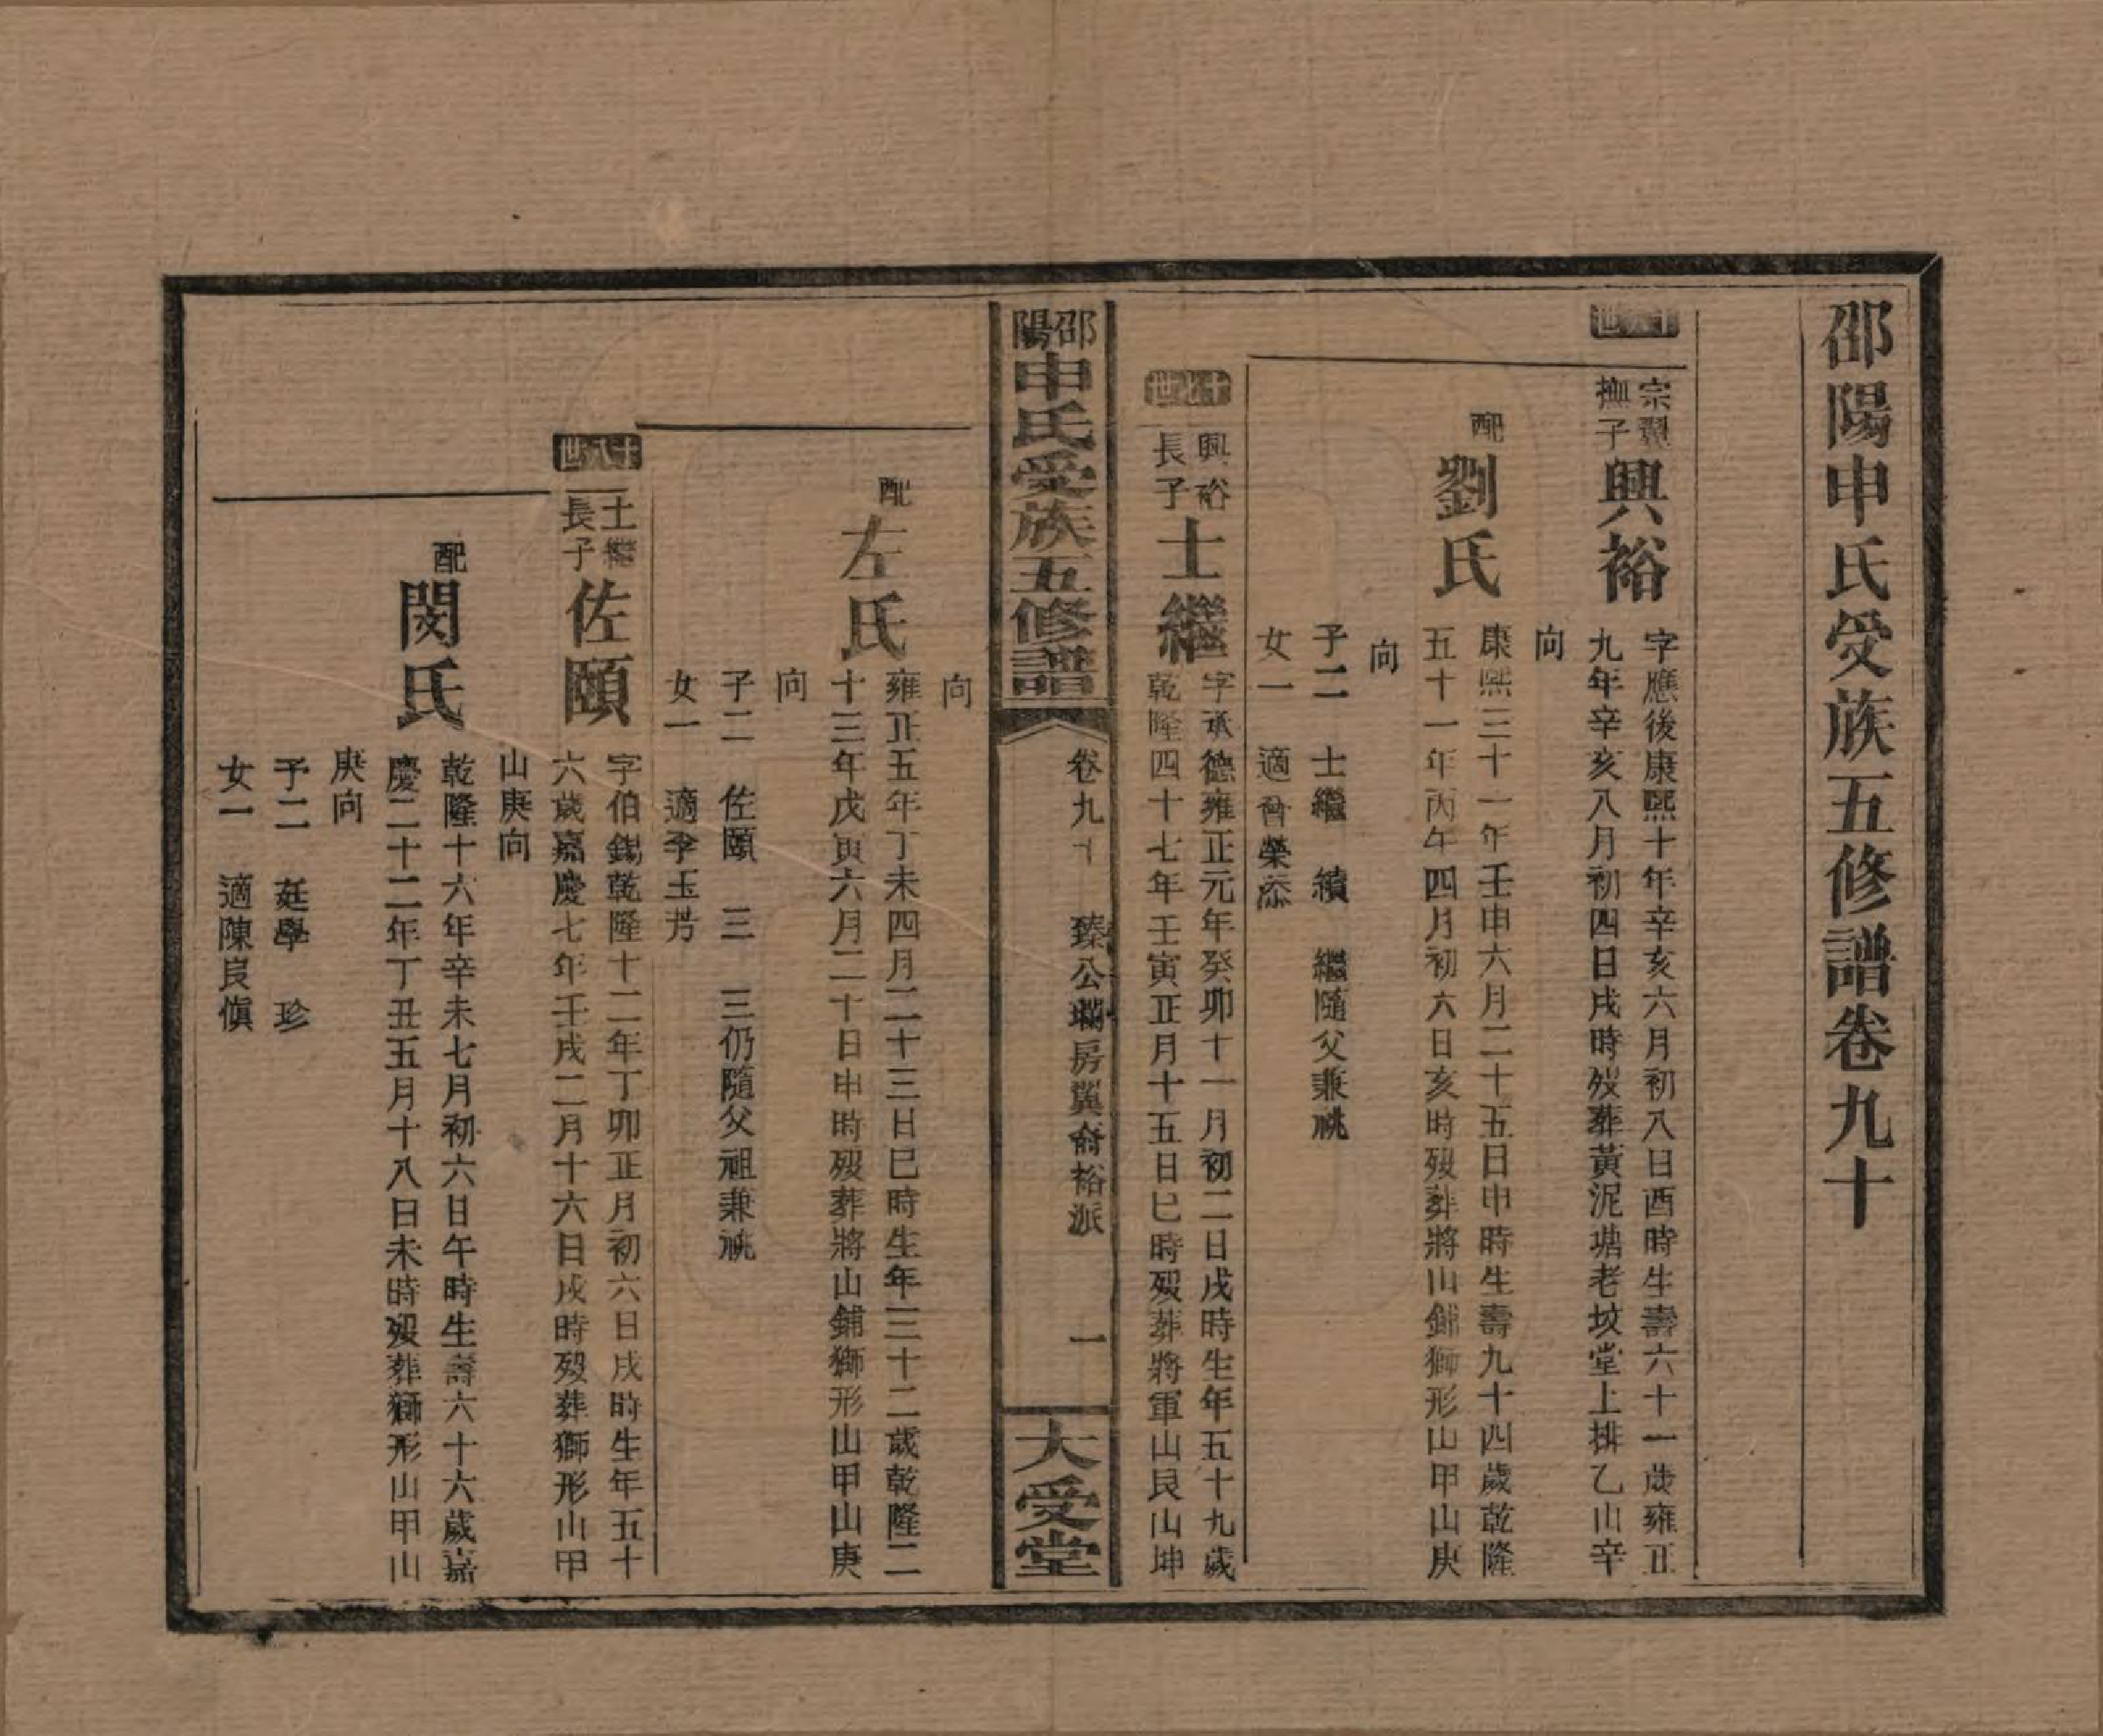 邵陽申氏受族五修譜卷九十
十六世
宗翼
撫子
興裕
字應後康熙十年辛亥六月初八日酉時生壽六十一歲雍正
九年辛亥八月初四日戌時歿葬黃泥塘老坟堂上排乙山辛
向
配
劉氏
康熙三十一年壬申六月二十五日申時生壽九十四歲乾隆
五十一年丙午四月初六日亥時歿葬將山鋪獅形山甲山庚
向
子二 士繼 續 繼隨父兼祧
女一 適曾榮添
十七世
興裕
長子
士繼
字承德雍正元年癸卯十一月初二日戌時生年五十九歲
乾隆四十七年壬寅正月十五日巳時歿葬將軍山艮山坤
邵陽申氏受族五修譜
卷九十 臻公斕房翼裔裕派 一
大受堂
向
配
左氏
雍正五年丁未四月二十三日巳時生年三十二歲乾隆二
十三年戊寅六月二十日申時歿葬將山鋪獅形山甲山庚
向
子二 佐頤 三 三仍隨父祖兼祧
女一 適李玉芳
十八世
士繼
長子
佐頤
字伯錫乾隆十二年丁卯正月初六日戌時生年五十
六歲嘉慶七年壬戌二月十六日戌時歿葬獅形山甲
山庚向
配
閔氏
乾隆十六年辛未七月初六日午時生壽六十六歲嘉
慶二十二年丁丑五月十八日未時歿葬獅形山甲山
庚向
子二 廷學 珍
女一 適陳良慎